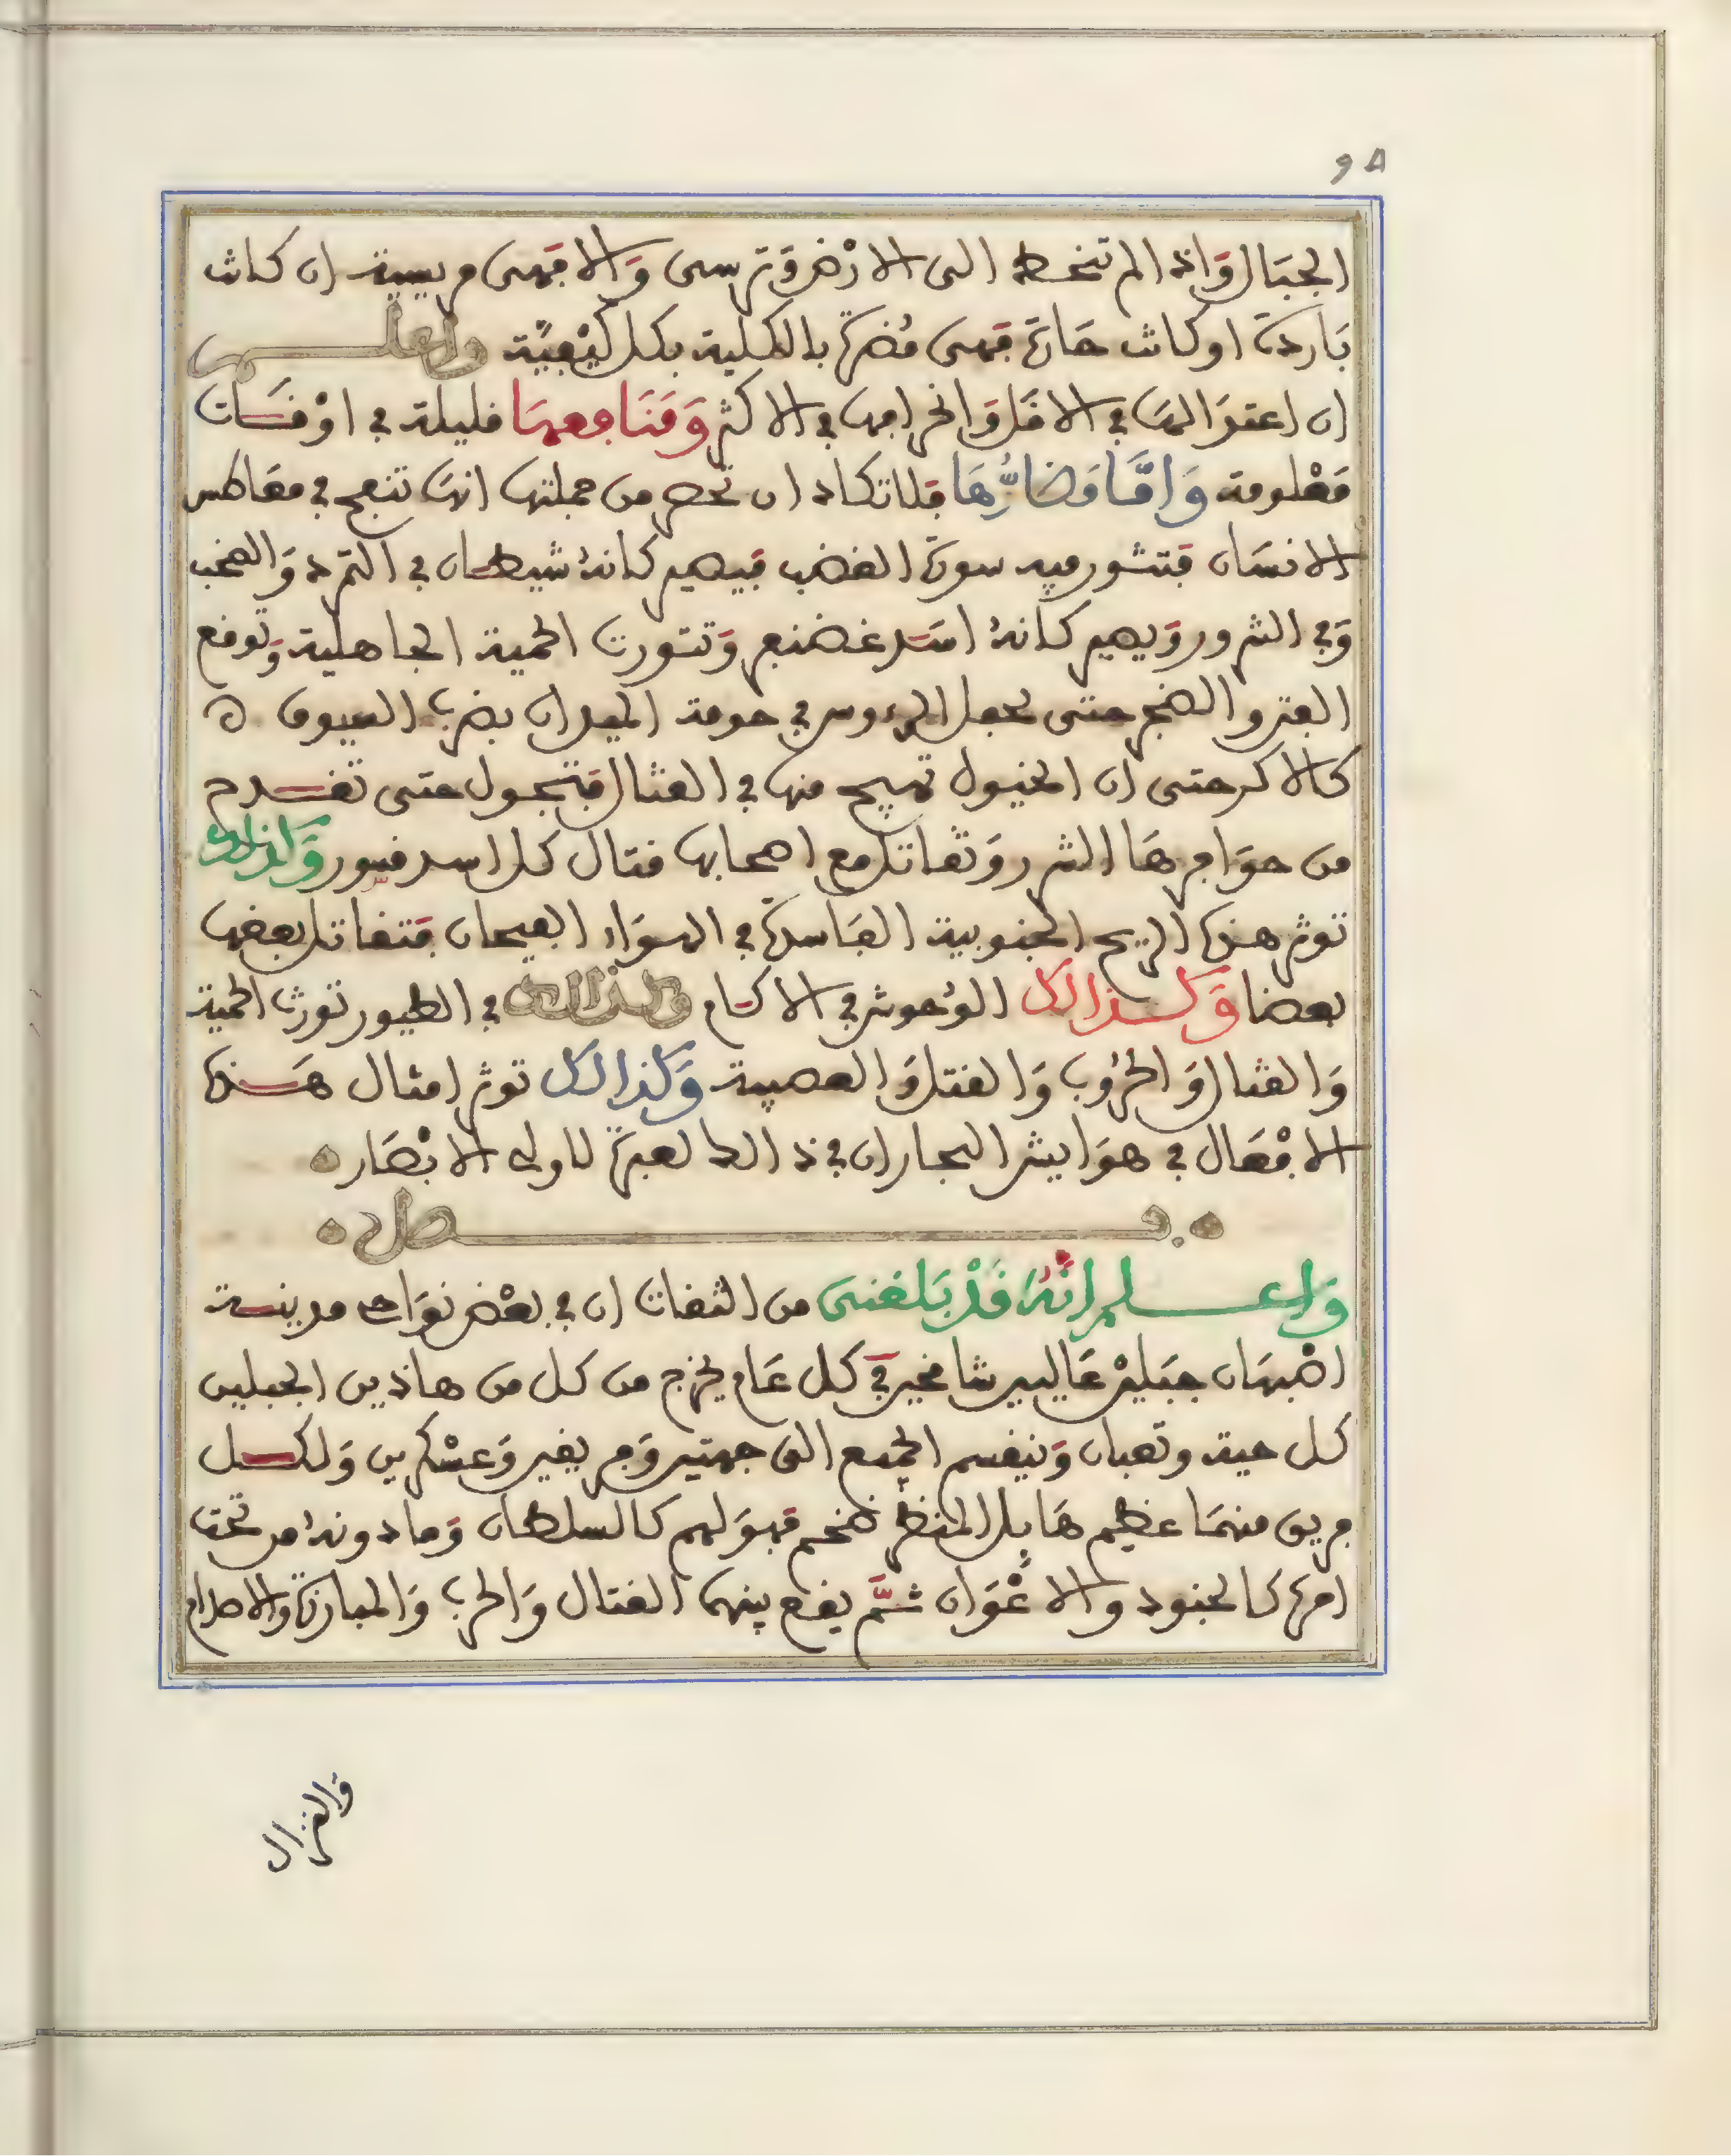 ٩٨
الجبَال وَاذا لم تنحط الى الارْض وَترسى وَالا فهى مريبية ان كانت
بَاردة او كانت حَارّة فهى مُضرة بالكلية بكل كَيْفيّة واعلم
ان اعتوَالهَا في الاقل وَانحرافها في الاكثر وَمَنَافعهَا قليلة في اوْقَات
مَعْلومة وَامَّا مَضارُّهَا فلا تكاد ان تحصر من جملتها انهَا تنفح في معَاطس
الانسَان فتثور فيه سورة الغضب فيصير كانهُ شيطان في التمرد وَالصخب
وَفي الشرور وَيصير كانهُ اسَد غضنفر وَتثورث الحمية الجاهلية وَتوقع
الفتر والضجر حتى تجعل الرءوس في حومة الميدان بضرب السيوف ه
كالاكر حتى ان الخيول تهيج منها في القتال فتجول حتى تقدح
من حوَافرهَا الشرر وَتقاتل مع اصحابها قتال كل اسد قسور وَكذلك
توثر هذه الريح الجنوبية الفَاسدة في الهوَاء الفيحان فتقاتل بعضها
بعضا وَكذالك الوُحوش في الاكام وكذالك في الطيور تورث الحمية
وَالقتال وَالحرُوب وَالفتل وَالعصبية وَكذالك توثر امثال هَذه
الافْعَال في هوَايش البحار ان في ذالك لعبرة لاولى الابْصَار
فصل
وَاعلم انّهُ قَدْ بَلغنى من الثقات ان في بعْض نوَاحى مدينة
اصْبهَان جبَليْن عَاليين شامخين في كل عَام يخرج من كل من هاذين الجبلين
كل حية وثعبان وَينقسم الجمع الى جهتين وَفريقين وَعسْكرين وَلكل
فريق منهمَا عظيم هَايل المنظر ضخم فهوَ لهم كالسلطان وَما دونهُ من تحت
امره كالجنود والاعْوَان ثمَّ يقع بينهما القتال وَالحرب وَالمبارزة وَالاصدام
وَالنزال